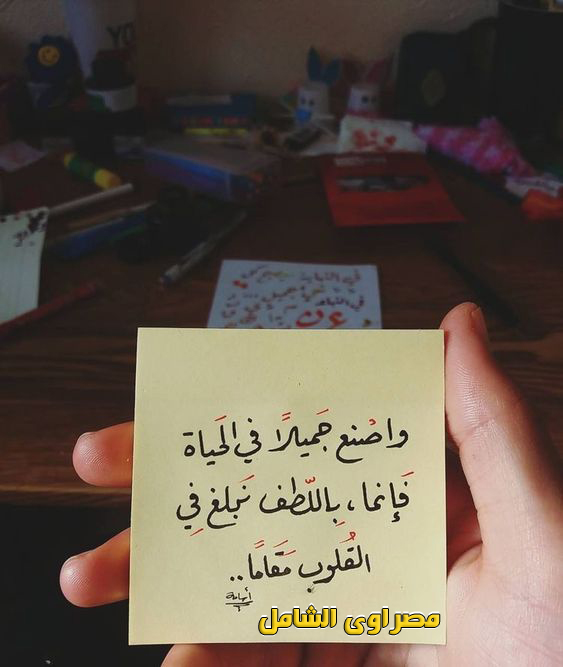 واصْنع جَميلًا في الحَياة
فَإنما، بِاللّطف نَبلغ فِي
القُلوب مَقَامًا..
مصراوى الشامل